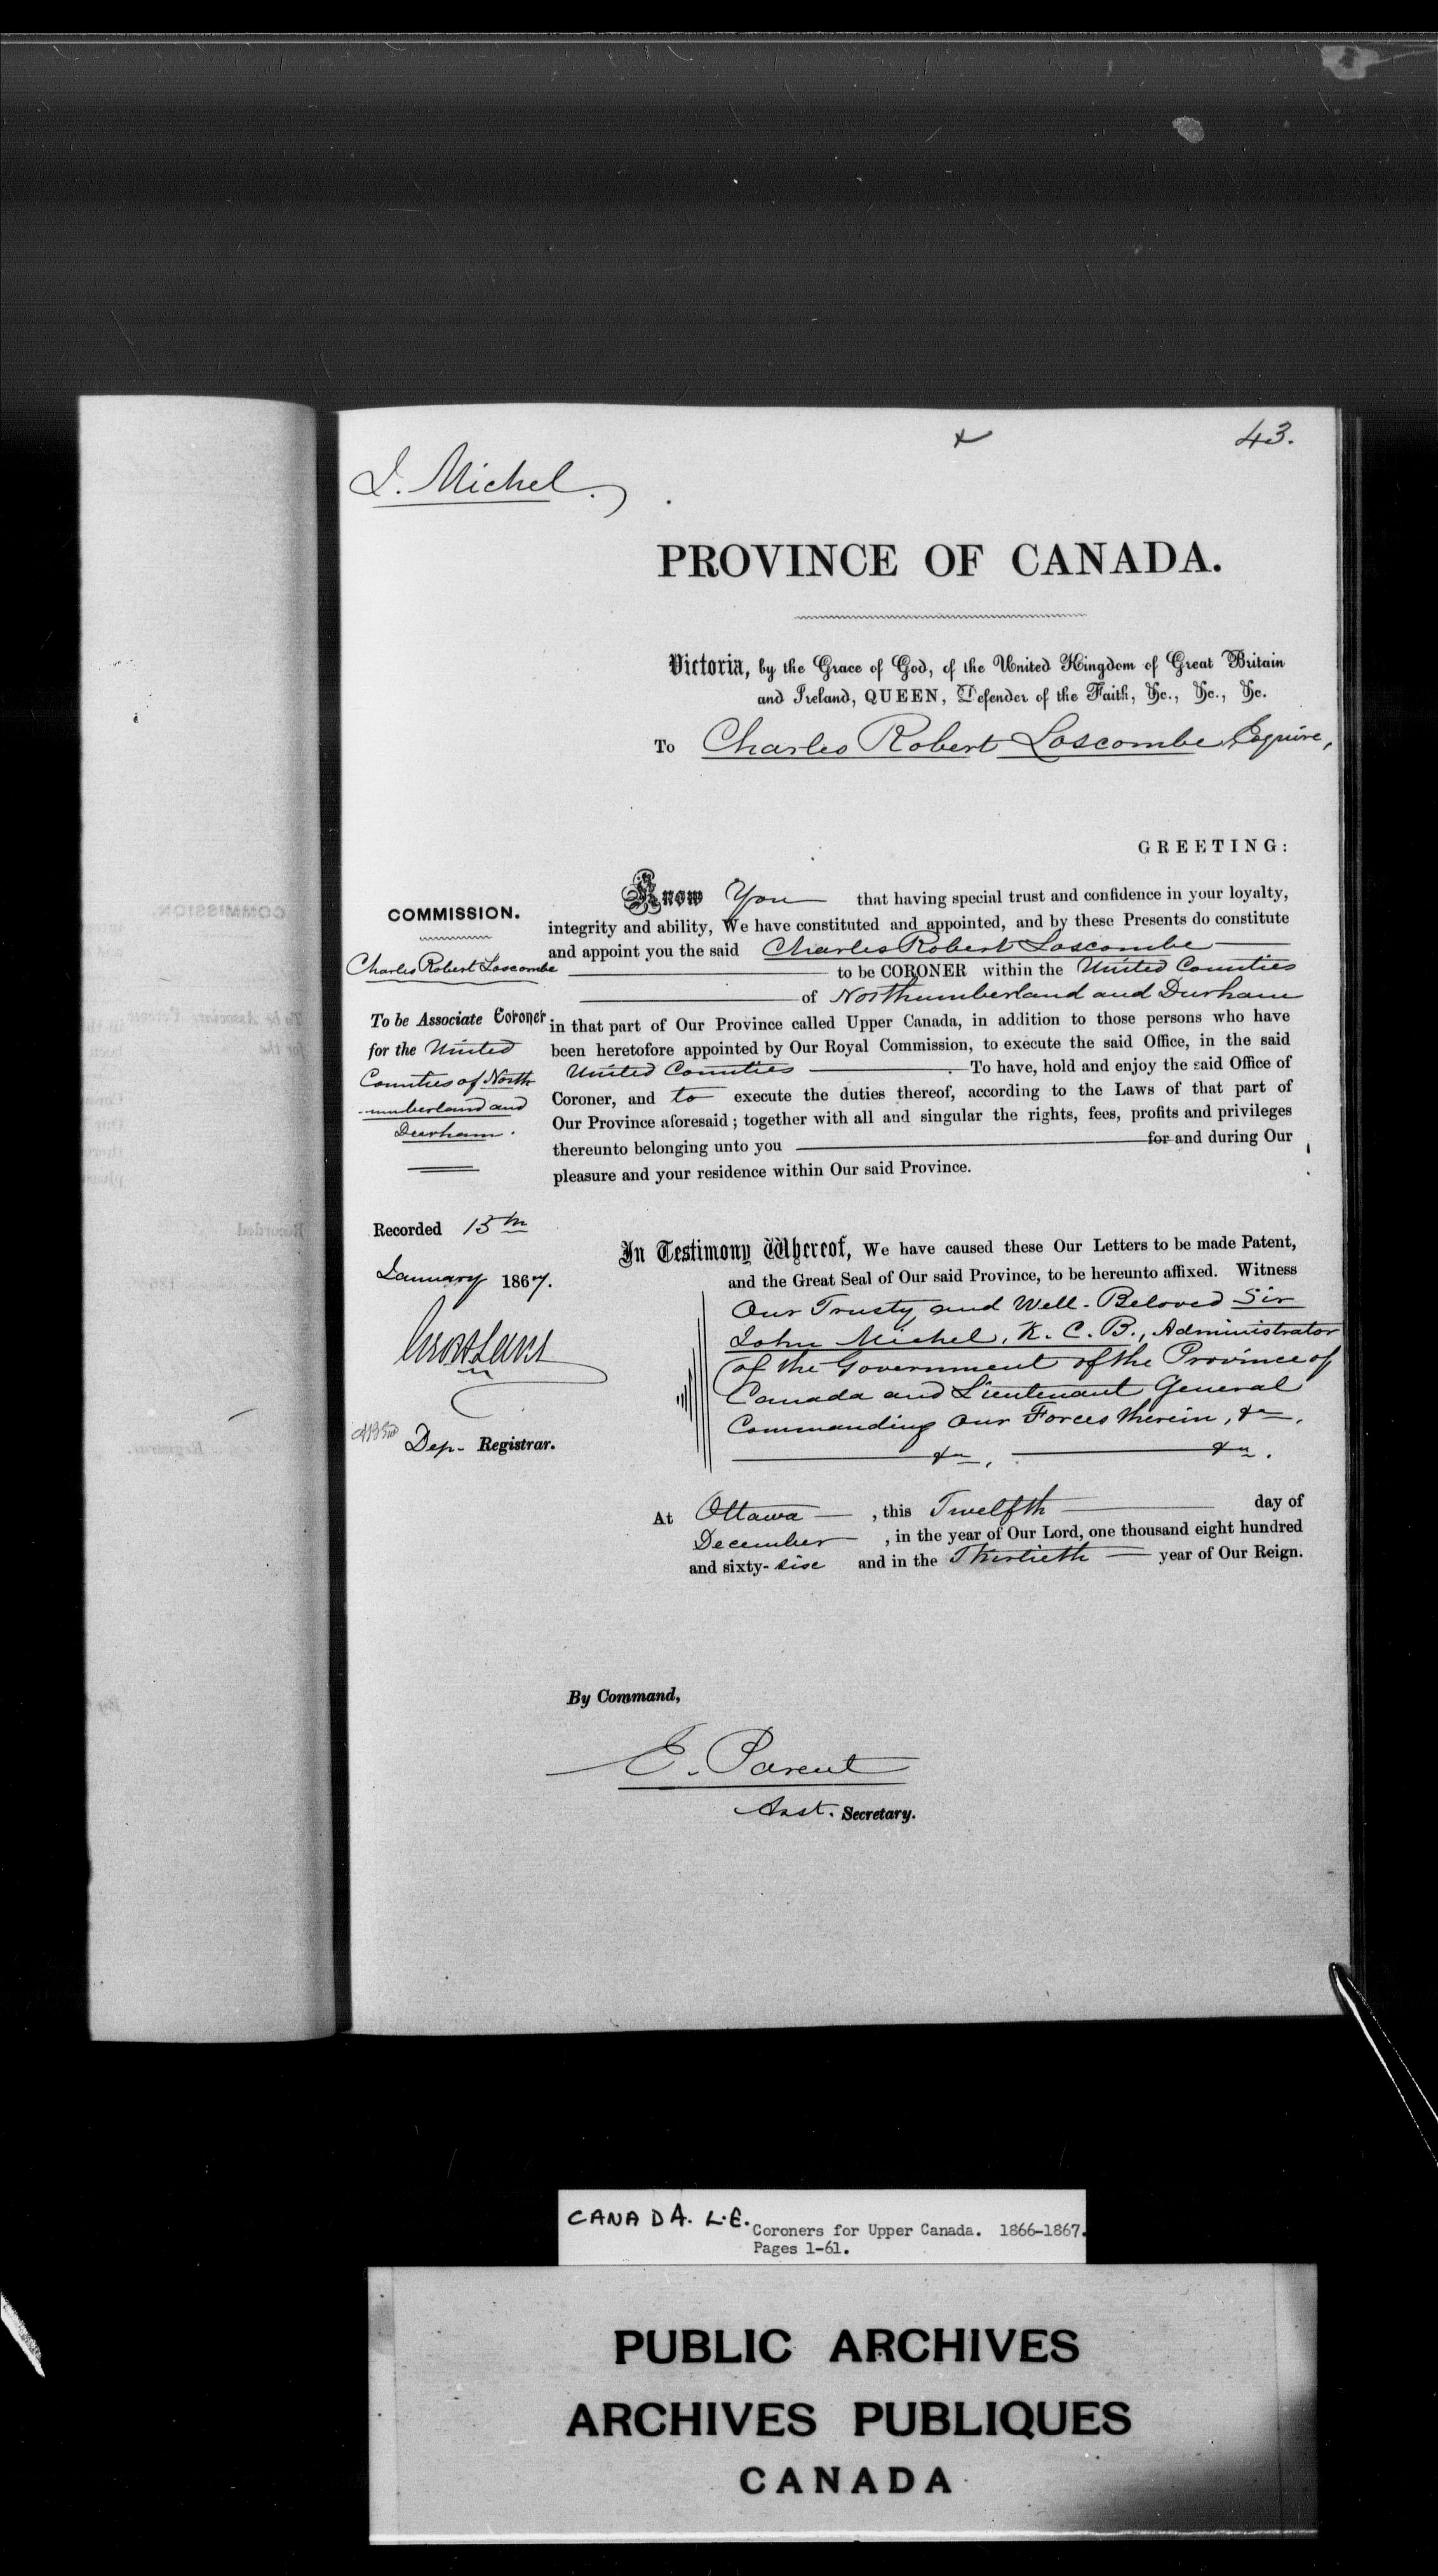 43.
J. Michel.
PROVINCE OF CANADA.
Victoria, by the Grace of God, of the United Kingdom of Great Britain
and Ireland, QUEEN, Defender of the Faith, &c., &c., &c.
To Charles Robert Loscombe Esquire,
GREETING:
COMMISSION.
Charles Robert Loscombe
To be Associate Coroner
for the United
Counties of North
-umberland and
Durham.
Know You that having special trust and confidence in your loyalty,
integrity and ability, We have constituted and appointed, and by these Presents do constitute
and appoint you the said Charles Robert Loscombe
to be CORONER within the United Counties
of Northumberland and Durham
in that part of Our Province called Upper Canada, in addition to those persons who have
been heretofore appointed by Our Royal Commission, to execute the said Office, in the said
United Counties To have, hold and enjoy the said Office of
Coroner, and to execute the duties thereof, according to the Laws of that part of
Our Province aforesaid; together with all and singular the rights, fees, profits and privileges
thereunto belonging unto you for and during Our
pleasure and your residence within Our said Province.
Recorded 15th
January 1867.
Dep- Registrar.
In Testimony Whereof, We have caused these Our Letters to be made Patent,
and the Great Seal of Our said Province, to be hereunto affixed. Witness
Our Trusty and Well-Beloved Sir
John Michel, K.C.B., Administrator
of the Government of the Province of
Canada and Lieutenant General
Commanding Our Forces therein, &c.
&c., &c.
At Ottawa, this Twelfth day of
December, in the year of Our Lord, one thousand eight hundred
and sixty-six and in the Thirtieth year of Our Reign.
By Command,
E. Parent
Asst. Secretary.
CANADA. L.E.
Coroners for Upper Canada. 1866-1867.
Pages 1-61.
PUBLIC ARCHIVES
ARCHIVES PUBLIQUES
CANADA